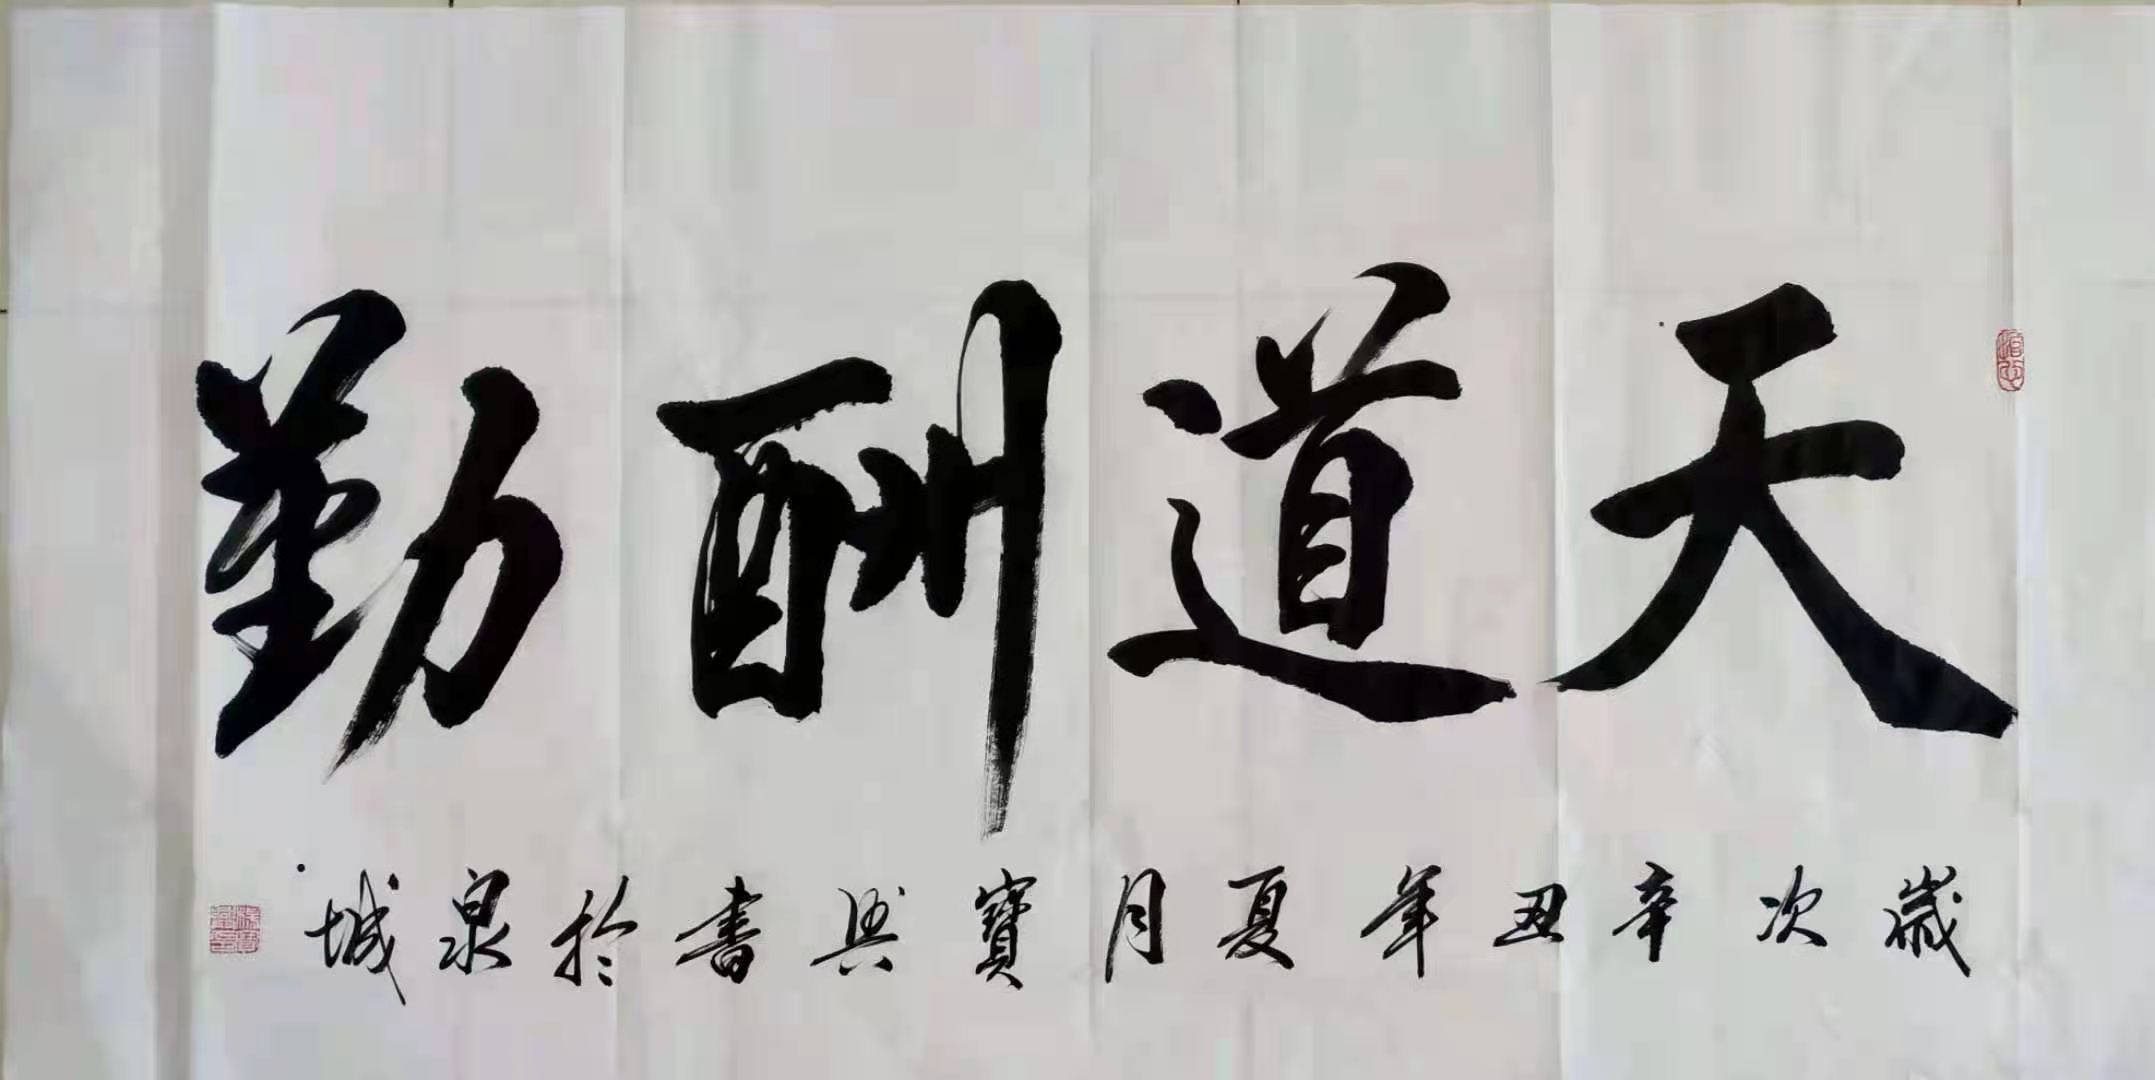 天道酬勤
歲次辛丑年夏月寶興書於泉城